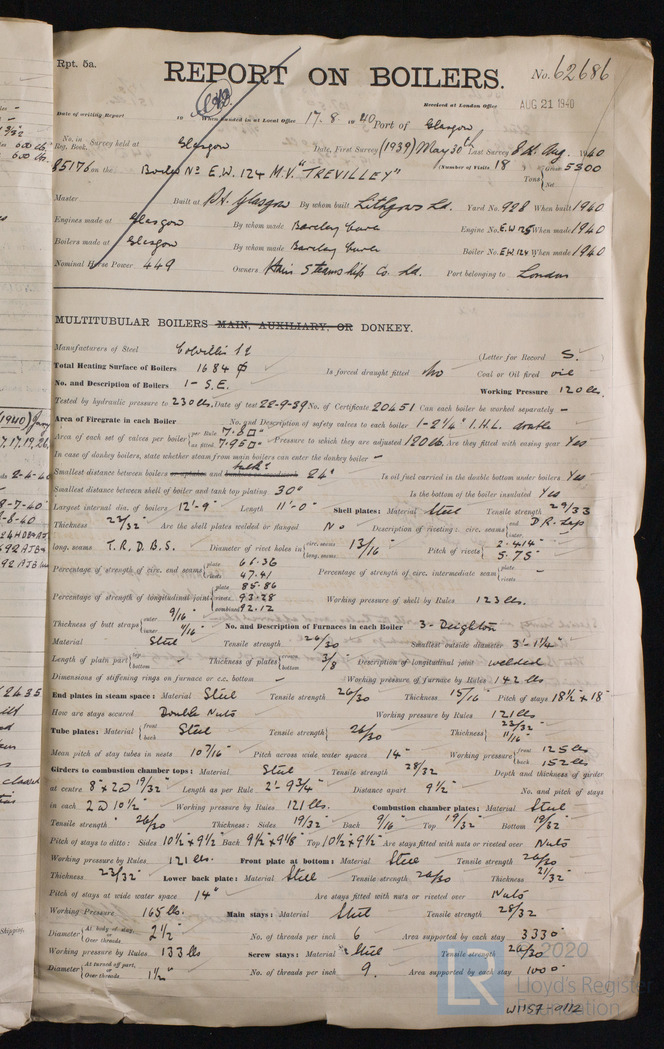 Rpt. 5a.
REPORT ON BOILERS.
No. 62686
Received at London Office AUG 21 1940
Date of writing Report 19 When handed in at Local Office 17. 8. 19 40 Port of Glasgow
No. in Reg. Book. Survey held at Glasgow Date, First Survey (1939) May 30th Last Survey 8th Aug. 1940
85176 on the Boiler No E.W. 124 M.V. "TREVILLEY" (Number of Visits 18 Gross 5300
Tons Net
Master Built at Pt. Glasgow By whom built Lithgows Ld. Yard No. 928 When built 1940
Engines made at Glasgow By whom made Barclay Curle Engine No. E.W 125 When made 1940
Boilers made at Glasgow By whom made Barclay Curle Boiler No. E.W. 124 When made 1940
Nominal Horse Power 449 Owners Hain Steamship Co. Ld. Port belonging to London
MULTITUBULAR BOILERS MAIN, AUXILIARY, OR DONKEY.
Manufacturers of Steel Colvilles Ld (Letter for Record S.)
Total Heating Surface of Boilers 1684 Is forced draught fitted No Coal or Oil fired oil
No. and Description of Boilers 1 - S.E. Working Pressure 120 lbs.
Tested by hydraulic pressure to 230 lbs. Date of test 28-9-39 No. of Certificate 20451 Can each boiler be worked separately -
Area of Firegrate in each Boiler No. and Description of safety valves to each boiler 1 - 2¼" I.H.L. double
Area of each set of valves per boiler per Rule 7.8 as fitted 7.95 Pressure to which they are adjusted 120 lb. Are they fitted with easing gear Yes
In case of donkey boilers, state whether steam from main boilers can enter the donkey boiler -
Smallest distance between boilers or uptakes and bunkers or woodwork 24" Is oil fuel carried in the double bottom under boilers Yes
Smallest distance between shell of boiler and tank top plating 30" Is the bottom of the boiler insulated Yes
Largest internal dia. of boilers 12'-9" Length 11'-0" Shell plates: Material Steel Tensile strength 29/33
Thickness 22/32 Are the shell plates welded or flanged No Description of riveting: circ. seams end D.R. Lap inter.
long. seams T.R.D.B.S. Diameter of rivet holes in circ. seams long. seams 13/16 Pitch of rivets 2.414" 5.75"
Percentage of strength of circ. end seams plate 61.36 rivets 47.41 Percentage of strength of circ. intermediate seam plate rivets -
Percentage of strength of longitudinal joint plate 85.86 rivets 93.28 combined 92.12 Working pressure of shell by Rules 123 lbs.
Thickness of butt straps outer 9/16" inner 11/16" No. and Description of Furnaces in each Boiler 3 - Deighton
Material Steel Tensile strength 26/30 Smallest outside diameter 3'-1¼"
Length of plain part top bottom Thickness of plates crown bottom 3/8 Description of longitudinal joint welded
Dimensions of stiffening rings on furnace or c.c. bottom - Working pressure of furnace by Rules 142 lbs
End plates in steam space: Material Steel Tensile strength 26/30 Thickness 15/16" Pitch of stays 18½" x 18"
How are stays secured Double Nuts Working pressure by Rules 121 lbs
Tube plates: Material front back Steel Tensile strength 26/30 Thickness 23/32" 11/16"
Mean pitch of stay tubes in nests 10 7/16" Pitch across wide water spaces 14" Working pressure front 125 lbs back 152 lbs
Girders to combustion chamber tops: Material Steel Tensile strength 28/32 Depth and thickness of girder
at centre 8 x 2 @ 19/32" Length as per Rule 2'-9¾" Distance apart 9½" No. and pitch of stays
in each 2 @ 10½" Working pressure by Rules 121 lbs. Combustion chamber plates: Material Steel
Tensile strength 26/30 Thickness: Sides 19/32" Back 9/16" Top 19/32" Bottom 19/32"
Pitch of stays to ditto: Sides 10½" x 9½" Back 9½" x 9⅛" Top 10½" x 9½" Are stays fitted with nuts or riveted over Nuts
Working pressure by Rules 121 lbs. Front plate at bottom: Material Steel Tensile strength 26/30
Thickness 23/32" Lower back plate: Material Steel Tensile strength 26/30 Thickness 21/32"
Pitch of stays at wide water space 14" Are stays fitted with nuts or riveted over Nuts
Working Pressure 165 lbs. Main stays: Material Steel Tensile strength 28/32
Diameter At body of stay, or Over threads. 2½" No. of threads per inch 6 Area supported by each stay 333"
Working pressure by Rules 133 lbs Screw stays: Material Steel Tensile strength 26/30
Diameter At turned off part, or Over threads. 1½" No. of threads per inch 9. Area supported by each stay 100"
© 2020
LR
Lloyd's Register
Foundation
W1157-0112